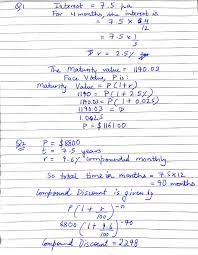 Q1 Interest = 7.5 pa
For 4 months, the interest is
= 7.5 × 4
12
= 7.5 × 1
3
I r = 2.5%
The Maturity value = 1190.03
Face Value, P is:
Maturity Value = P(1+r)
1190 = P(1+2.5%)
1190.03 = P(1+0.025)
1190.03 = P
1.0025
P = $1161.00
Q2 P = $8800
t = 7.5 years
r = 9.6% compounded monthly
So total time in months = 7.5×12
= 90 months
Compound Discount is given by
P(1+r)-n
100
8800(1+9.6)-90
100
Compound Discount = 2298